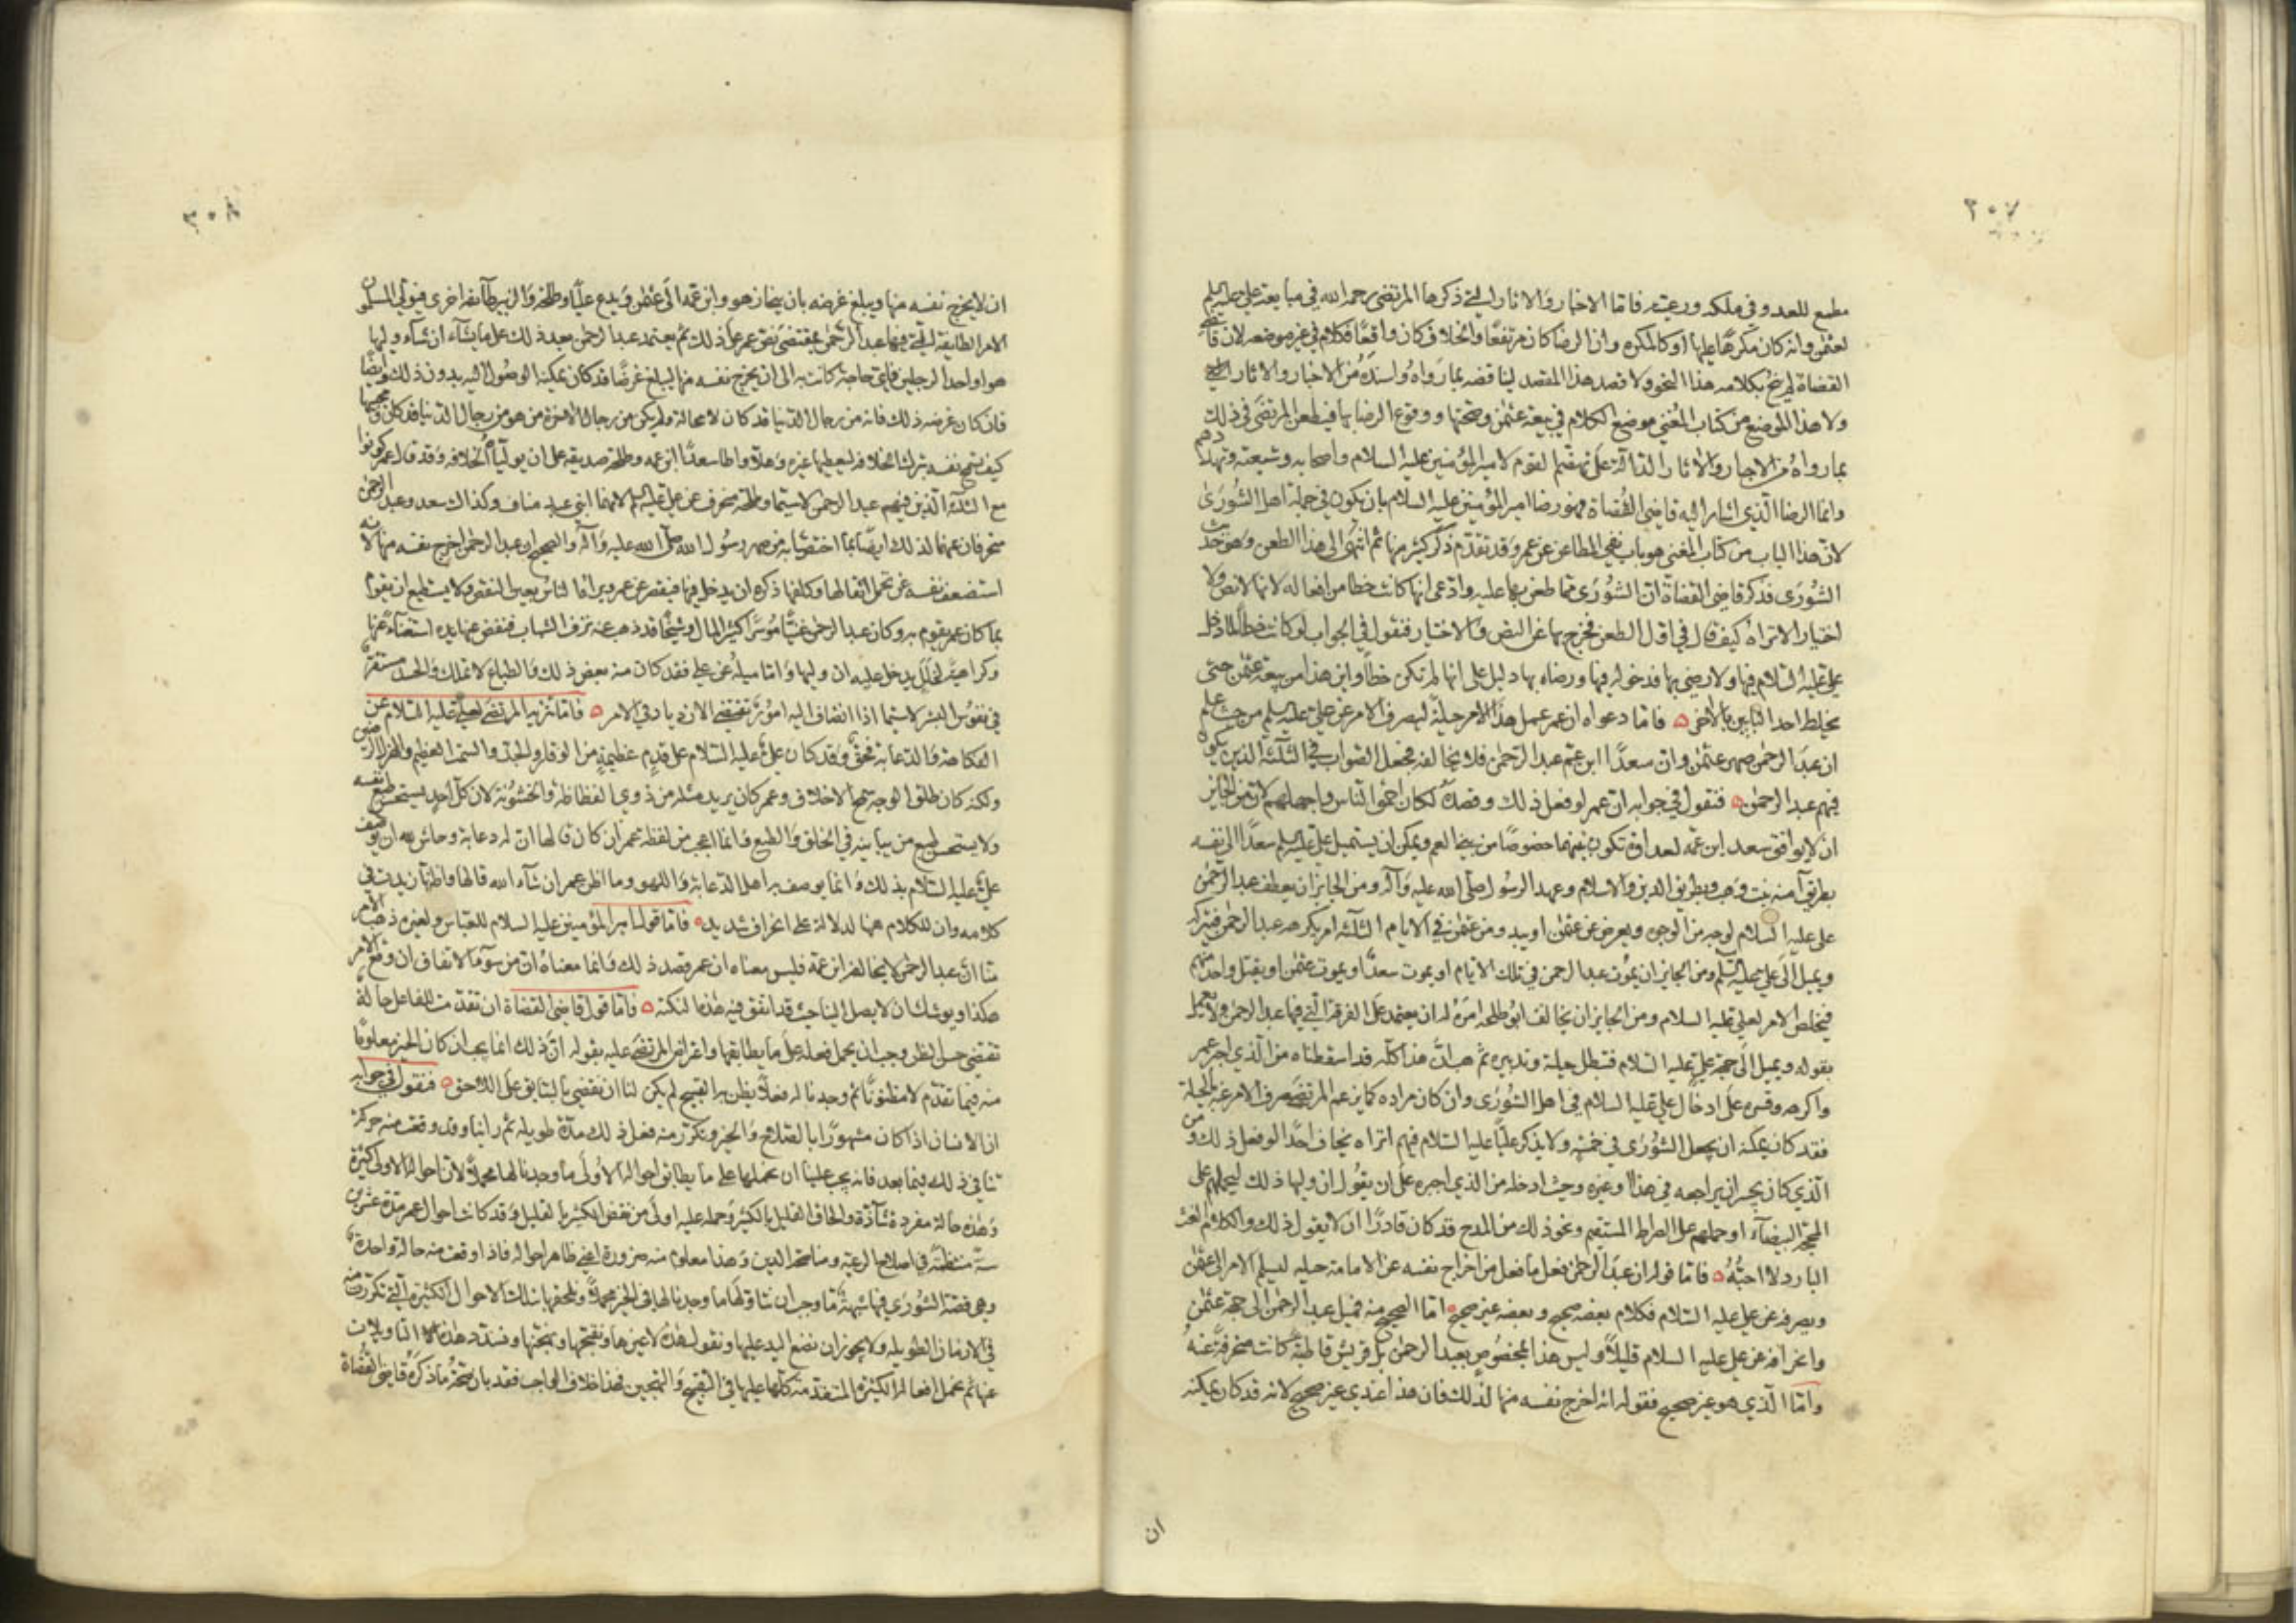 ٣٠٧
مطيع للعدو وفي ملكه ورعيته فاما الاخبار والاثار التي ذكرها المرتضى رحمه الله في مبايعة علي عليه السلم
لعثمن وانه كان مكرهًا عليها او كالمكره وان الرضا كان مرتفعًا والخلاف كان واقعًا فكلام في غير موضعه لان قاضي
القضاة لم ينح بكلامه هذا النحو ولا قصد هذا المقصد ليناقضه بما رواه واسنده من الاخبار والاثار التي
ولا هذا الموضع من كتاب المغني موضع الكلام في بيعة عثمن وصحتها ووقوع الرضا بها فيطعن المرتضى في ذلك
بما رواه من الاخبار والاثار الدالة على تهضّم القوم لامير المؤمنين عليه السلام واصحابه وشيعته وتهددهم
وانما الرضا الذي اشار اليه قاضي القضاة فهو رضا امير المؤمنين عليه السلام بان يكون في جملة اهل الشورى
لان هذا الباب من كتاب المغني هو باب نفي المطاعن عن عمر وقد تقدم ذكر كثير منها ثم انتهى الى هذا الطعن وهو حديث
الشورى فذكر قاضي القضاة ان الشورى مما طعن بها عليه وادعى انها كانت خطا من افعاله لانها لا نص ولا
اختيار الا تراه كيف قال في اول الطعن فخرج بها عن النص والاختيار فنقول في الجواب لو كانت خطأ لما دخل
علي عليه السلام فيها ولا رضي بها فدخوله فيها ورضاه بها دليل على انها لم تكن خطأ واين هذا من بيعة عثمن حتى
يخلط احد البابين بالاخر فاما دعواه ان عمر عمل هذا الامر حيلة ليصرف الامر عن علي عليه السلم من حيث علم
ان عبد الرحمن صهر عثمن وان سعدًا ابن عم عبد الرحمن فلا يخالفه فجعل الصواب في الثلثة الذين يكون
فيهم عبد الرحمن فنقول في جوابه ان عمر لو فعل ذلك وقصده لكان احمق الناس واجهلهم لانه من الجائز
ان لا يوافق سعد ابن عمه لعداوة تكون بينهما خصوصًا من بني العم ويمكن ان يستميل علي عليه السلم سعدًا الى نفسه
بطريق آمنة بنت وهب وبطريق الدين والاسلام وعهد الرسول صلى الله عليه وآله ومن الجائز ان يعطف عبد الرحمن
على علي عليه السلام لوجه من الوجوه ويعرض عن عثمن او يبدو من عثمن في الايام الثلثة امر يكرهه عبد الرحمن فيتركه
ويميل الى علي عليه السلم ومن الجائز ان يموت عبد الرحمن في تلك الايام او يموت سعد او يموت عثمن او يقتل واحد منهم
فيخلص الامر لعلي عليه السلام ومن الجائز ان يخالف ابو طلحة امره له ان يعتمد على الفرقة التي فيها عبد الرحمن ولا يعمل
بقوله ويميل الى جهة علي عليه السلام فتبطل حيلة وتدبيره ثم هب ان هذا كله قد اسقطناه من الذي اجبر عمر
واكرهه وقسره على ادخال علي عليه السلام في اهل الشورى وان كان مراده كما يزعم المرتضى صرف الامر عنه بالحيلة
فقد كان يمكنه ان يجعل الشورى في خمسة ولا يذكر عليًا عليه السلام فيهم اتراه يخاف احدًا لو فعل ذلك ومن
الذي كان يجسر ان يراجعه في هذا او غيره وحيث ادخله من الذي اجبره على ان يقول ان وليها ذلك ليحملهم على
المحجة البيضآء او حملهم على الصراط المستقيم ونحو ذلك من المدح قد كان قادرًا ان لا يقول ذلك والكلام الغث
البارد لا احبّه فاما قوله ان عبد الرحمن فعل ما فعل من اخراج نفسه عن الامامة حيلة ليسلم الامر الى عثمن
ويصرفه عن علي عليه السلام فكلام بعضه صحيح وبعضه غير صحيح اما الصحيح منه فميل عبد الرحمن الى جهة عثمن
وانحرافه عن علي عليه السلام قليلًا وليس هذا المخصوص بعبد الرحمن بل قريش قاطبة كانت منحرفة عنه
واما الذي هو غير صحيح فقوله انه اخرج نفسه منها لذلك فان هذا عندي غير صحيح لانه قد كان يمكنه
ان
٣٠٨
ان لا يخرج نفسه منها ويبلغ غرضه بان ينحاز هو وابن عمه الى عثمن ويدع عليًا وطلحة والزبير طآئفة اخرى فيولي المسلمون
الامر الطايفة التي فيها عبد الرحمن بمقتضى نص عمر على ذلك ثم يعتمد عبد الرحمن بعد ذلك على ما يشآء ان شآء وليها
هو او احد الرجلين فاي حاجة كانت به الى ان يخرج نفسه منها ليبلغ غرضًا قد كان يمكنه الوصول اليه بدون ذلك وايضًا
فان كان غرضه ذلك فانه من رجال الدنيا قد كان لا محالة ولم يكن من رجال الاخرة ومن هو من رجال الدنيا ومحبيها
كيف تسمح نفسه بترك الخلافة ليعطيها غيره وهلا واطا سعدًا ابن عمه وطلحة صديقه على ان يولياه الخلافة وقد قال عمر كونوا
مع الثلثة الذين فيهم عبد الرحمن لا سيما وطلحة منحرف عن علي عليه السلم وعثمان لانهما ابني عبد مناف وكذلك سعد وعبد الرحمن
منحرفان عنهما لذلك ايضًا ولما اختصا به من صهر رسول الله صلى الله عليه وآله والصحيح ان عبد الرحمن اخرج نفسه منها لانه
استضعف نفسه عن تحمل اثقالها وكلفها وكره ان يدخل فيها فيقصر عن عمر ويراه الناس بعين النقص ولا يستطيع ان يقوم
بما كان عمر يقوم به وكان عبد الرحمن غنيًا موسرًا كثير المال وشيخًا قد ذهب عنه ترف الشباب فنفض عنها يده استغناءً عنها
وكراهية لخلل يدخل عليه ان وليها واما ميله عن علي فقد كان منه بعض ذلك والطباع لا تملك والحسد مستقر
في نفوس البشر لا سيما اذا انضاف اليه امور تقتضي الازدياد في الامر فاما تنزيه المرتضى لعلي عليه السلام عن
الفكاهة والدعابة فحق وقد كان علي عليه السلام على قدم عظيمة من الوقار والجد والسمت العظيم والهدي الرصين
ولكنه كان طلق الوجه سمح الاخلاق وعمر كان يريد مثله من ذوي الفظاظة والخشونة لان كل احد يستحسن طبع نفسه
ولا يستحسن طبع من يباينه في الخلق والطبع وانا اعجب من لفظة عمر ان كان قالها ان له دعابة وحاش لله ان يوصف
علي عليه السلام بذلك وانما يوصف به اهل الدعابة واللهو وما اظن عمر ان شآء الله قالها واظنها زيدت في
كلامه وان الكلام ههنا لدلالة على انحراف شديد فاما قول امير المؤمنين عليه السلام للعباس ولغيره ذهب الامر
منا ان عبد الرحمن لا يخالف ابن عمه فليس معناه ان عمر قصد ذلك وانما معناه ان من سوء الاتفاق ان وقع الامر
هكذا ويوشك ان لا يصل الينا حيث قد اتفق فيه هذه النكتة فاما قول قاضي القضاة ان تقدمت للفاعل حالة
تقتضي حسن الظن وجب ان يحمل فعله على ما يطابقها واعتراض المرتضى عليه بقوله ان ذلك انما يجب ان كان الخير معلومًا
منه فيما تقدم لا مظنونًا ثم وجدنا له فعلًا يظن به القبيح لم يكن لنا ان نقضي بالسابق على اللاحق فنقول في جوابه
ان الانسان اذا كان مشهورًا بالصلاح والخير وتكرر منه فعل ذلك مدة طويلة ثم راينا وقد وقعت منه حركة
تنافي ذلك فيما بعد فانه يجب علينا ان نحملها على ما يطابق احواله الاولى ما وجدنا لها محملًا لان احواله الاولى كثيرة
وهذه حالة مفردة شآذة والحاق القليل بالكثير وحمله عليه اولى من نقض الكثير بالقليل وقد كانت احوال عمر مدة عشرين
سنة منتظمة في اصلاح الرعية ومناصحة الدين وهذا معلوم منه ضرورة اعني ظاهر احواله فاذا وقعت منه حالة واحدة
وهي قصة الشورى فيها شبهة ما وجب ان نتاولها ما وجدنا لها في الخير محملًا ونلحقها بتلك الاحوال الكثيرة التي تكررت منه
في الازمان الطويلة ولا يجوز ان نضع اليد عليها ونقول هذه لا غيرها ونقبحها ونهجنها ونسد هذه التاويلات
عنها ثم نحمل افعاله الكثيرة المتقدمة كلها عليها في التقبيح والتهجين فهذا خلاف الواجب فقد بان صحة ما ذكره قاضي القضاة